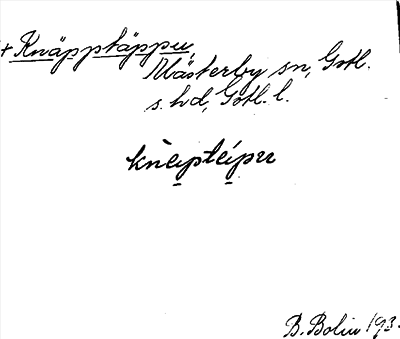 + Knäpptäppu,
Mästerby sn, Gotl.
s. hd, Gotl. l.
knèiptéipu
B. Bolin 193